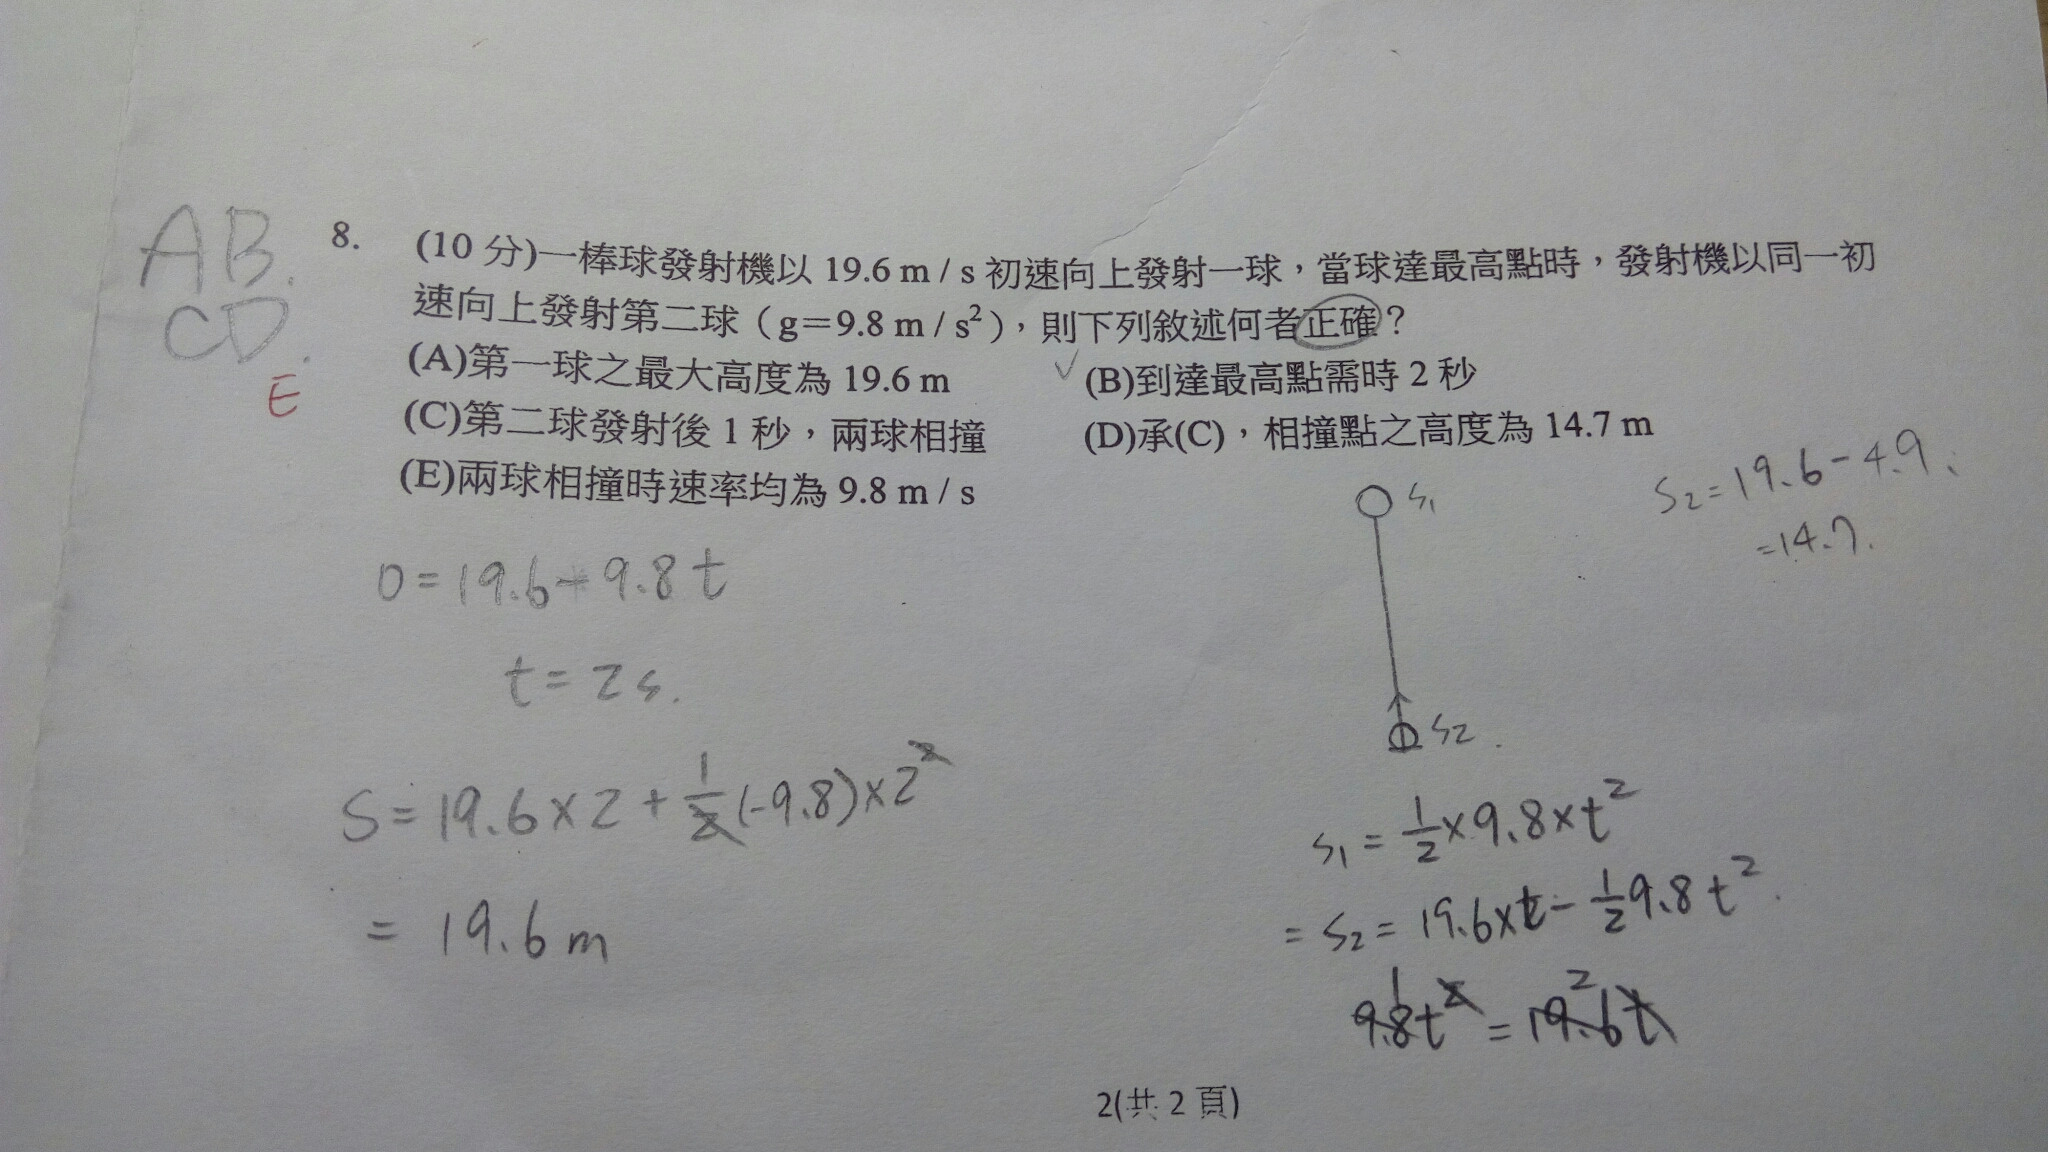 AB.
CD.
E
8. (10 分)一棒球發射機以 19.6 m / s 初速向上發射一球，當球達最高點時，發射機以同一初
速向上發射第二球（g＝9.8 m / s²），則下列敘述何者正確？
(A)第一球之最大高度為 19.6 m ✓(B)到達最高點需時 2 秒
(C)第二球發射後 1 秒，兩球相撞 (D)承(C)，相撞點之高度為 14.7 m
(E)兩球相撞時速率均為 9.8 m / s
S₁
S₂=19.6-4.9
=14.7.
0=19.6-9.8t
t=2s.
S₂.
S=19.6×2+½(-9.8)×2²
= 19.6m
S₁=½×9.8×t²
=S₂=19.6×t-½9.8t².
9.8t²=19.6t
1 2
2(共 2 頁)